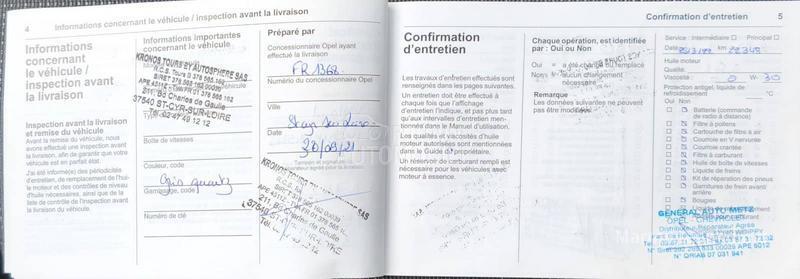 4 Informations concernant le véhicule / inspection avant la livraison
Informations
concernant
le véhicule /
inspection avant
la livraison
Inspection avant la livraison
et remise du véhicule
Avant la remise du véhicule, nous
avons effectué une inspection avant
la livraison, afin de garantir que votre
véhicule est en parfait état.
J'ai été informé(e) des périodicités
d'entretien, de remplacement de l'hui-
le moteur et des conditions de niveau
d'huile nécessaires, ainsi que de la
liste de contrôle de l'inspection avant
la livraison du véhicule.
Informations importantes
concernant le véhicule
KRONOS TOURS ET AUTOSPHERE SAS
R.C.S. Tours
211, Bd Charles de Gaulle
37540 ST-CYR-SUR-LOIRE
Tél. 02 47 49 12 12
Boîte de vitesses
Couleur, code
Garnissage, code
Numéro de clé
Préparé par
Concessionnaire Opel ayant
effectué la livraison
FR 1368
Numéro du concessionnaire Opel
Ville
Date
30/09/21
KRONOS TOURS ET AUTOSPHERE SAS
R.C.S. Tours
211, Bd Charles de Gaulle
Confirmation d'entretien 5
Confirmation
d'entretien
Les travaux d'entretien effectués sont
renseignés dans les pages suivantes.
Un entretien doit être effectué à
chaque fois que l'affichage
d'entretien l'indique, et pas plus tard
qu'aux intervalles d'entretien men-
tionnés dans le Manuel d'utilisation.
Les qualités et viscosités d'huile
moteur autorisées sont mentionnées
dans le Guide du propriétaire.
Un réservoir de carburant rempli est
nécessaire pour les véhicules avec
moteur à essence.
Chaque opération, est identifiée
par : Oui ou Non
Oui = a été changé ou remplacé
Non = aucun changement
nécessaire
Remarque
Les données suivantes ne peuvent
pas être modifiées.
Service : Intermédiaire Principal
Date km 22348
Huile moteur
Qualité:
Viscosité: 0 W- 30
Protection antigel, liquide de
refroidissement °C
Oui Non
Batterie (commande
de radio à distance)
Filtre à pollens
Cartouche de filtre à air
Courroie en V nervurée
Courroie crantée
Filtre à carburant
Huile de boîte de vitesses
Liquide de freins
Kit de réparation des pneus
Garnitures de frein avant/
arrière
Bougies
GENERAL AUTO METZ
OPEL - CHEVROLET
Distributeur Réparateur Agréé
N° ORIAS 07 031 941